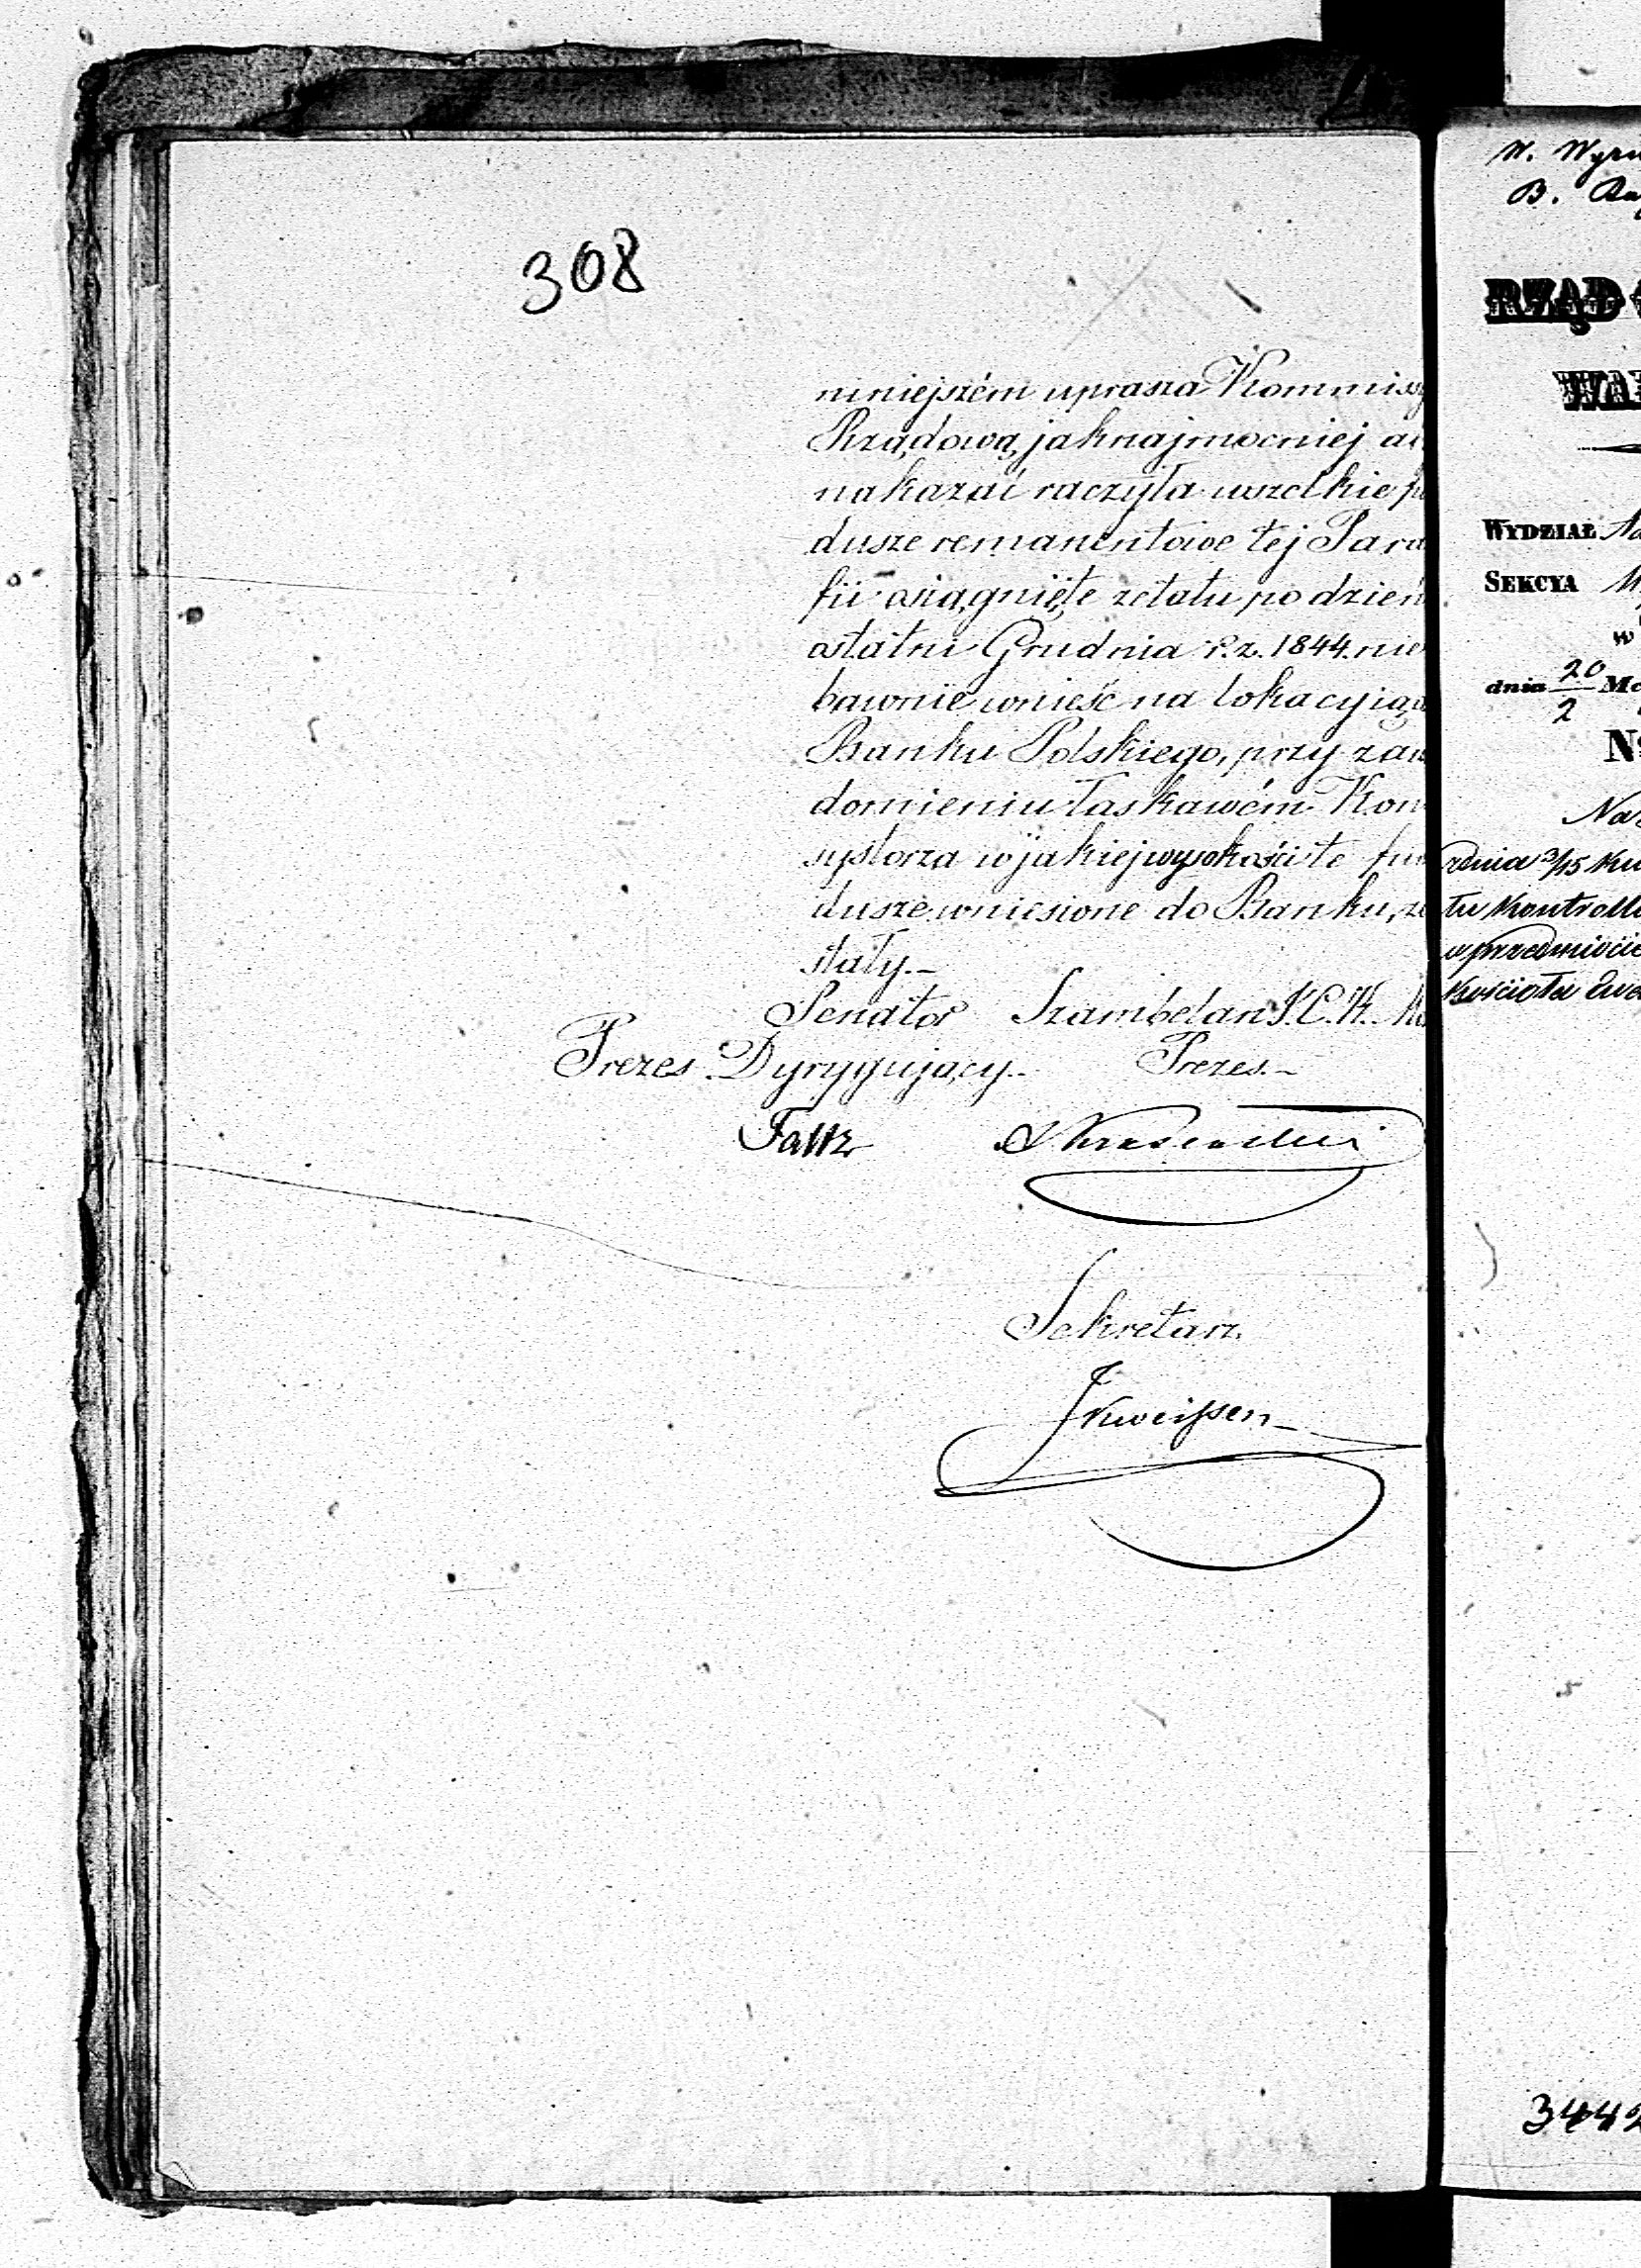 308
niniejszém uprasza Kommissy
Rządową jaknajmocniej a
nakazać raczyła wszelkie fu
dusze remanentowe tej Para
fii osiągnięte z etatu po dzień
ostatni Grudnia r. z. 1844. nie
bawnie wnieść na lokacyią
Banku Polskiego, przy zaw
domieniu łaskawém Kon
systorza w jakiej wysokości te fun
dusze wniesione do Banku, zo
stały.-
Senator Szambelan J.C.K. M
Prezes Dyrygujący.- Prezes.-
Faltz
Sekretarz.
W. Wyzn
B.
RZĄD
WA
WYDZIAŁ
SEKCYA
w
dnia 20/2 M
N
Na
zdnia 3/15 Kw
tu Kontroll
w przedmiocie
Kościoła Ewa
3442